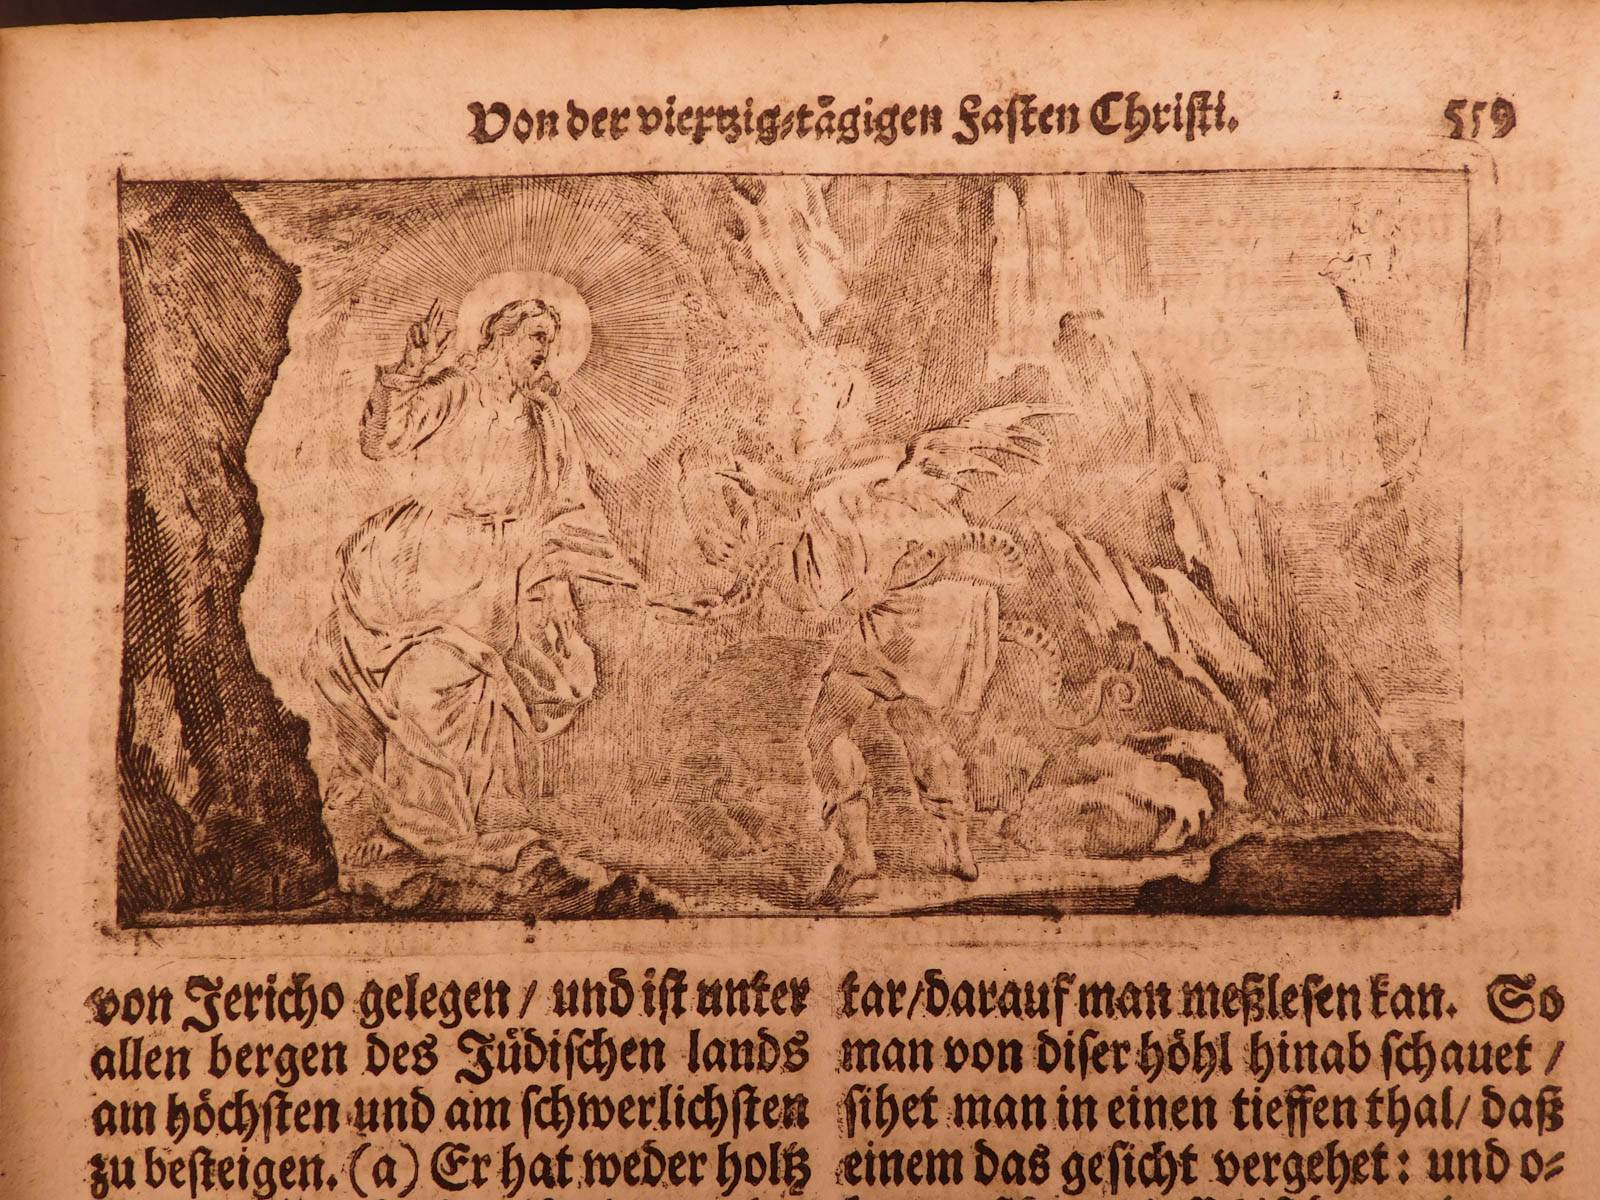 Von der viertzig-tågigen Fasten Christi.
559
von Jericho gelegen / und ist unter
allen bergen des Jůdischen lands
am hőchsten und am schwerlichsten
zu besteigen. (a) Er hat weder holtz
tar/darauf man meßlesen kan. So
man von diser hőhl hinab schauet /
sihet man in einen tieffen thal/ daß
einem das gesicht vergehet: und o-